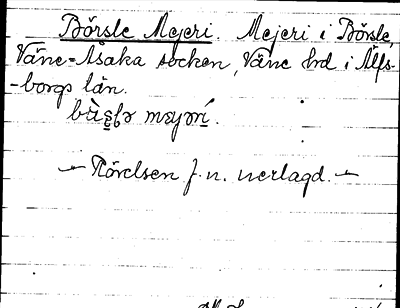 Börsle Mejeri. Mejeri i Börsle,
Väne-Åsaka socken, Väne hd i Älfs-
-borgs län.
— Rörelsen f. n. nerlagd. —